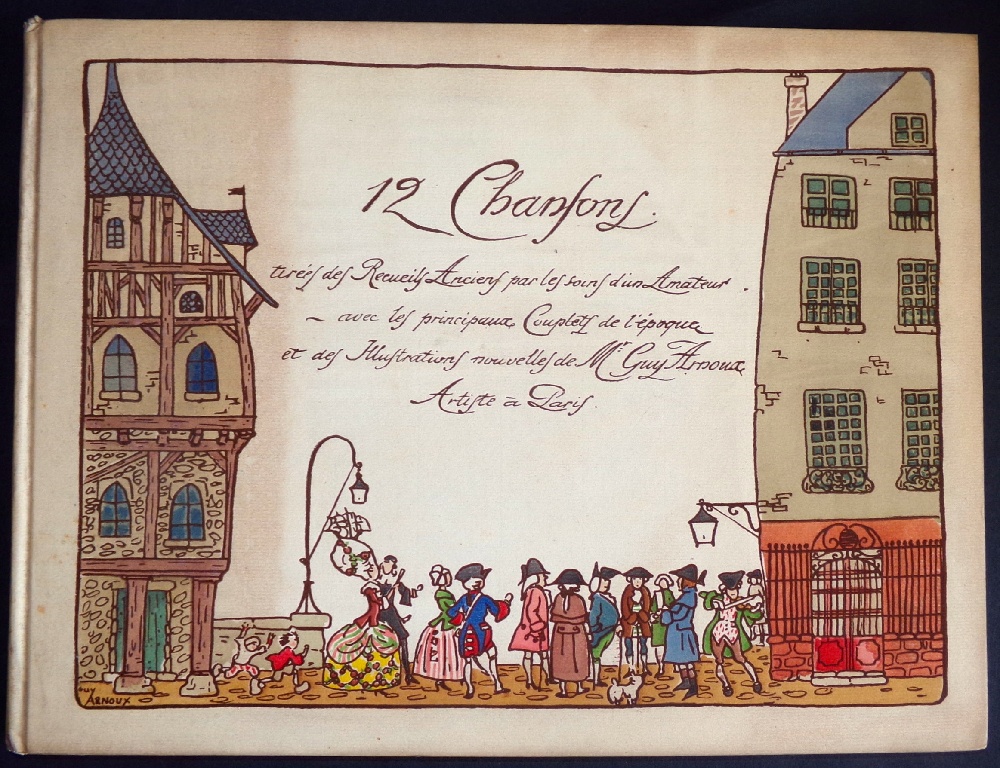 12 Chanſons.
tirés des Recueils Anciens par les soins d'un Amateur.
- avec les principaux Couplets de l'époque
et des Illustrations nouvelles de Mr Guy Arnoux
Artiste à Paris.
GUY
ARNOUX